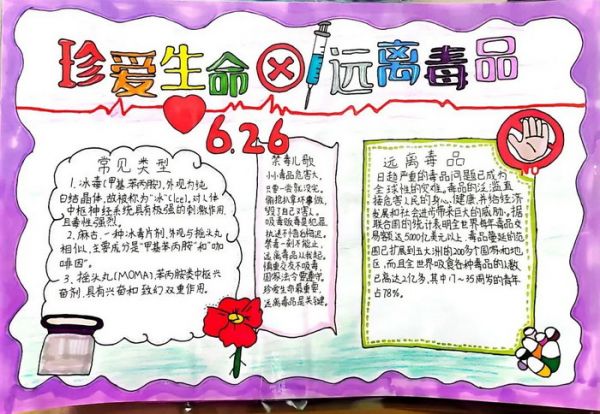 珍爱生命 远离毒品
6.26
常见类型
1.冰毒(甲基苯丙胺),外观为纯
白结晶体,故被称为"冰"(Ice).对人体
中枢神经系统具有极强的刺激作用,
且毒性强烈.
2.麻古,一种冰毒片剂,外观与摇头丸
相似,主要成分是"甲基苯丙胺"和"咖
啡因".
3.摇头丸(MDMA)苯丙胺类中枢兴
奋剂,具有兴奋和致幻双重作用.
禁毒儿歌
小小毒品危害大,
只要一尝就没完.
偷抢扒拿坏事做,
毁了自己又害人.
吸毒贩毒是犯罪
执迷不悟白锒铛.
禁毒一刻不能止,
远离毒品从我起.
慎重交友不吸毒,
国家法令要遵守.
珍爱生命最重要,
远离毒品是关键.
远离毒品
日趋严重的毒品问题已成为
全球性的灾难,毒品的泛滥直
接危害人民的身心健康,并给经济
发展和社会进步带来巨大的威胁.据
联合国的统计表明全世界每年毒品交
易额达5000亿美元以上,毒品蔓延的范
围已扩展到五大洲的200多个国家和地
区,而且全世界吸食各种毒品的人数
已高达2亿多,其中17~35周岁的青年
占78%.